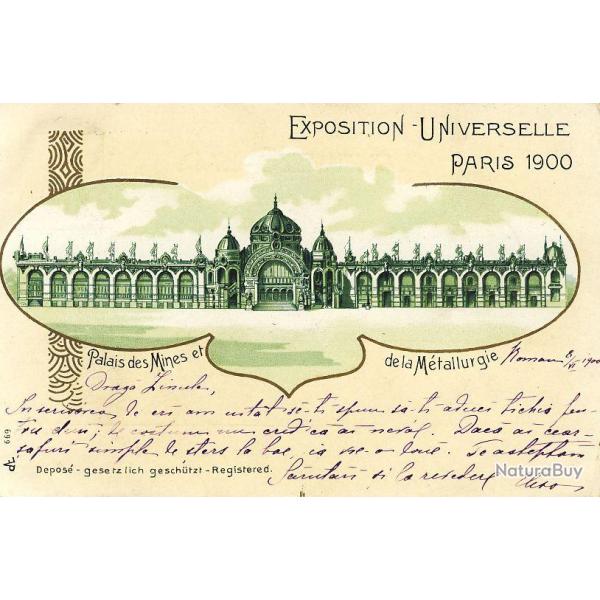 EXPOSITION - UNIVERSELLE
PARIS 1900
Palais des Mines et de la Métallurgie
Roman 8/VI 1900
Dragă
În scrisoarea de eri am uitat să-ți spun să-ți aduci tichia
de costum nu cred că ai nevoi. Dacă ai cear-
șafuri simple de șters la bae, ia pe-o două. Te așteptăm
Sărutări și la revedere
669
Deposé - gesetzlich geschützt - Registered.
NaturaBuy